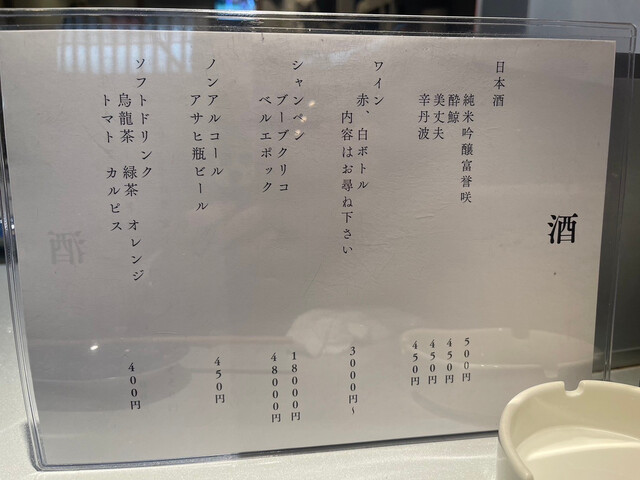 酒
日本酒
純米吟醸富誉咲 500円
酔鯨 450円
美丈夫 450円
辛丹波 450円
ワイン
赤、白ボトル 3000円~
内容はお尋ね下さい
シャンペン
ブーブクリコ 18000円
ベルエポック 48000円
ノンアルコール
アサヒ瓶ビール 450円
ソフトドリンク
烏龍茶 緑茶 オレンジ 400円
トマト カルピス